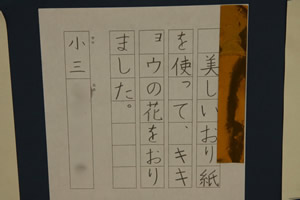 美しいおり紙
を使って、キキ
ョウの花をおり
ました。
小三